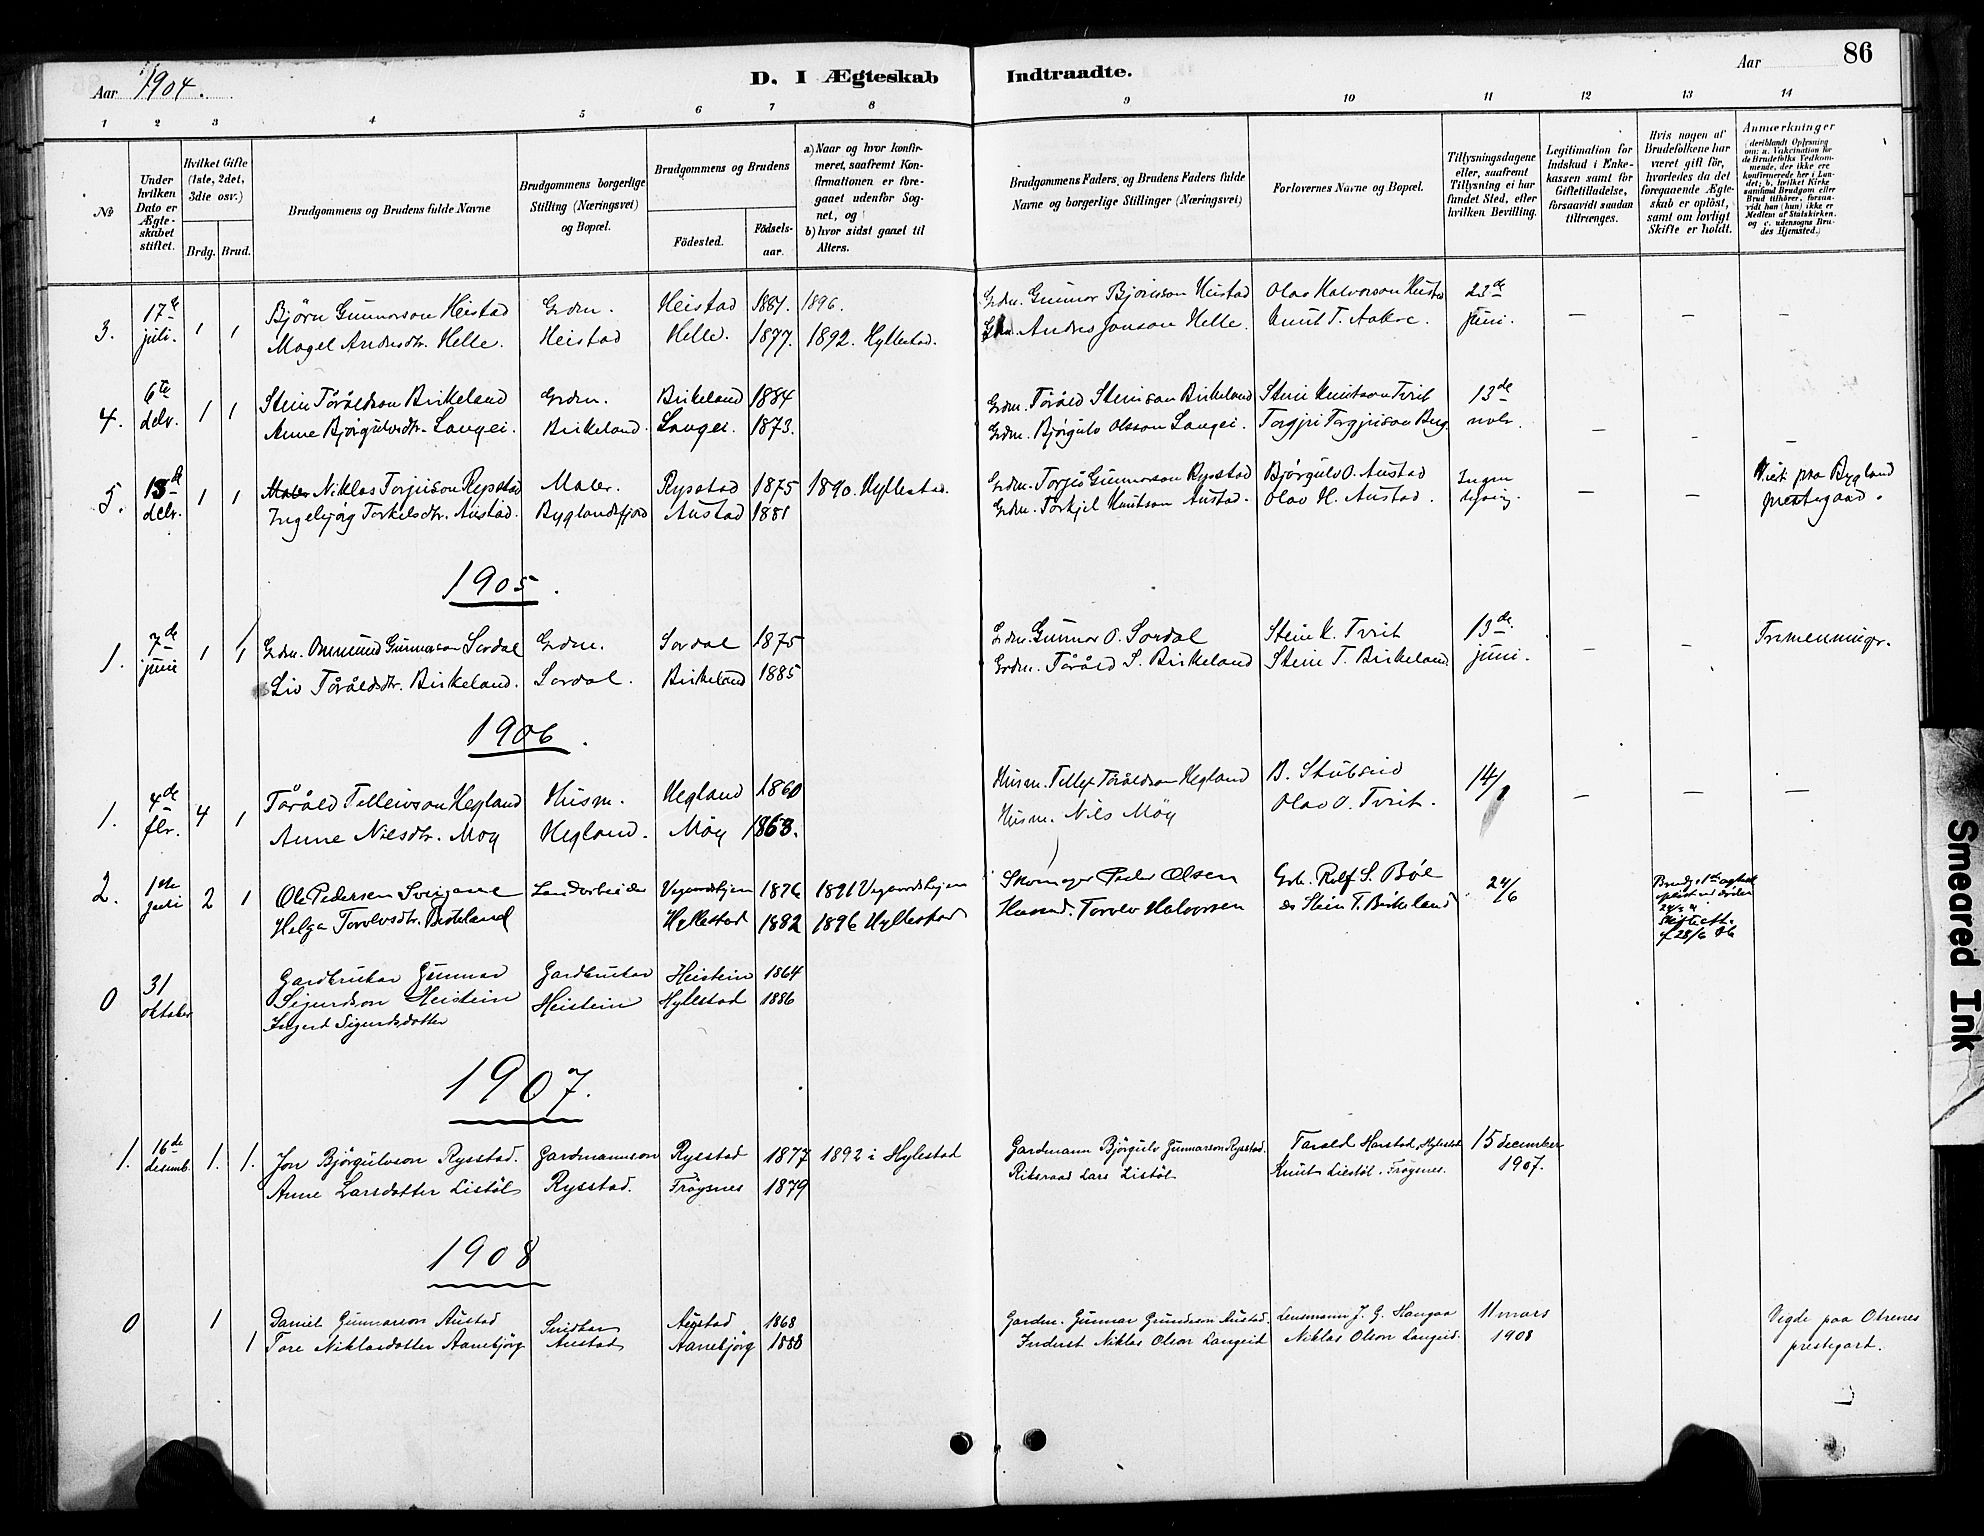 Aar 1904.
D. I Ægteskab Indtraadte.
Aar
86
1 2 3 4 5 6 7 8 9 10 11 12 13 14
No
Under hvilken Dato er Ægteskabet stiftet.
Hvilket Gifte (1ste, 2det, 3die osv.)
Brdg. Brud.
Brudgommens og Brudens fulde Navne
Brudgommens borgerlige Stilling (Næringsvei) og Bopæl.
Brudgommens og Brudens
Födested. Födselsaar.
a) Naar og hvor konfirmeret, saafremt Konfirmationen er foregaaet udenfor Sognet, og
b) hvor sidst gaaet til Alters.
Brudgommens Faders, og Brudens Faders fulde Navne og borgerlige Stillinger (Næringsvei)
Forlovernes Navne og Bopæl.
Tillysningsdagene eller, saafremt Tillysning ei har fundet Sted, efter hvilken Bevilling.
Legitimation for Indskud i Enkekassen samt for Giftetilladelse, forsaavidt saadan tiltrænges.
Hvis nogen af Brudefolkene har været gift för, hvorledes da det foregaaende Ægteskab er oplöst, samt om lovligt Skifte er holdt.
Anmærkninger (deriblandt Oplysning om: a. Vakcination for de Brudefolks Vedkommende, der ikke ere konfirmerede her i Landet; b. hvilket Kirkesamfund Brudgom eller Brud tilhörer, forsaavidt han (hun) ikke er Medlem af Statskirken, og c. udensogns Brudes Hjemsted.)
3. 17de juli. 1 1 Björn Gunnarson Heistad Grdm. Heistad 1881. 1896. Grdm. Gunnar Björnson Heistad Olav Halvorson Heistad 23de juni. — — —
Magel Andersdtr. Helle. Heistad Helle. 1877. 1892. Hyllestad. Grdm. Anders Jonson Helle. Knut T. Aakre.
4. 6te debr. 1 1 Stein Tóraldson Birkeland Grdm. Birkeland 1884 Grdm. Tórald Steinson Birkeland Stein Knutson Tveit 13de nobr. — — —
Anne Björgulvsdtr. Langei. Birkeland. Langei. 1873. Grdm. Björgulv Olsson Langei. Torgjei Torgjeison Berg.
5. 13de debr. 1 1 Maler Niklas Torjuson Rysstad Maler. Rysstad 1875 1890. Hyllestad. Grdm. Torjus Gunnarson Rysstad Björgulv O. Austad Ingen lysing. — — Viet paa Bygland
Ingebjörg Torkelsdtr. Austad. Byglandsfjord Austad 1881 Grdm. Torkjel Knutson Austad. Olav H. Austad. prestegaard.
1905.
1. 7de juni 1 1 Grdm. Ommund Gunnarson Sordal Grdm. Sordal 1875 Grdm. Gunnar O. Sordal Stein K. Tveit 13de juni. — — Tremenningr.
Liv Tóraldsdtr. Birkeland. Sordal. Birkeland 1885 Grdm. Tórald S. Birkeland Stein T. Birkeland
1906.
1. 4de fbr. 4 1 Tórald Tellevson Hegland Husm. Hegland 1860 Husm. Tellef Tóraldson Hegland B. Stubseid 14/1 — — —
Anne Nielsdtr. Moy Hegland. Möy 1863. Husm. Nils Möy Olav O. Tveit.
2. 1ste juli 2 1 Ole Pedersen Landarbeider 1876 1891 Skomager Peder Olsen Grb. Rolf S. Böe 24/6
Helga Torolvsdtr. Birkeland Hyllestad 1882 1896 Hyllestad Torolv Halvorsen Stein T. Birkeland
0 31 oktober Gardbrukar Gunnar Gardbrukar Heistein 1864
Sigurdson Heistein Heistein Hylestad 1886
Ingerd Sigurdsdotter
1907.
1. 16de desemb. 1. 1. Jon Björgulvson Rysstad. Gardmannson Rysstad 1877 1892 i Hylestad Gardmann Björgulv Gunnarson Rysstad. Tarald Harstad, Hylestad 15 december 1907.
Anne Larsdotter Listöl Rysstad. Fröysnes 1879 Riksraad Lars Listöl Knut Liestöl. Fröysnes.
1908
0 1 Daniel Gunnarson Austad Austad 1868 Gardm. Gunnar Austad. Lensmann J. G. Haugaa 11 mars 1908 Vigde paa Otrenes
1 Tore Niklasdotter Aanebjörg Austad Aanebjörg 1880 Inderst Niklas Olson Langeid Niklas Olson Langeid. prestegart.
Smeared Ink